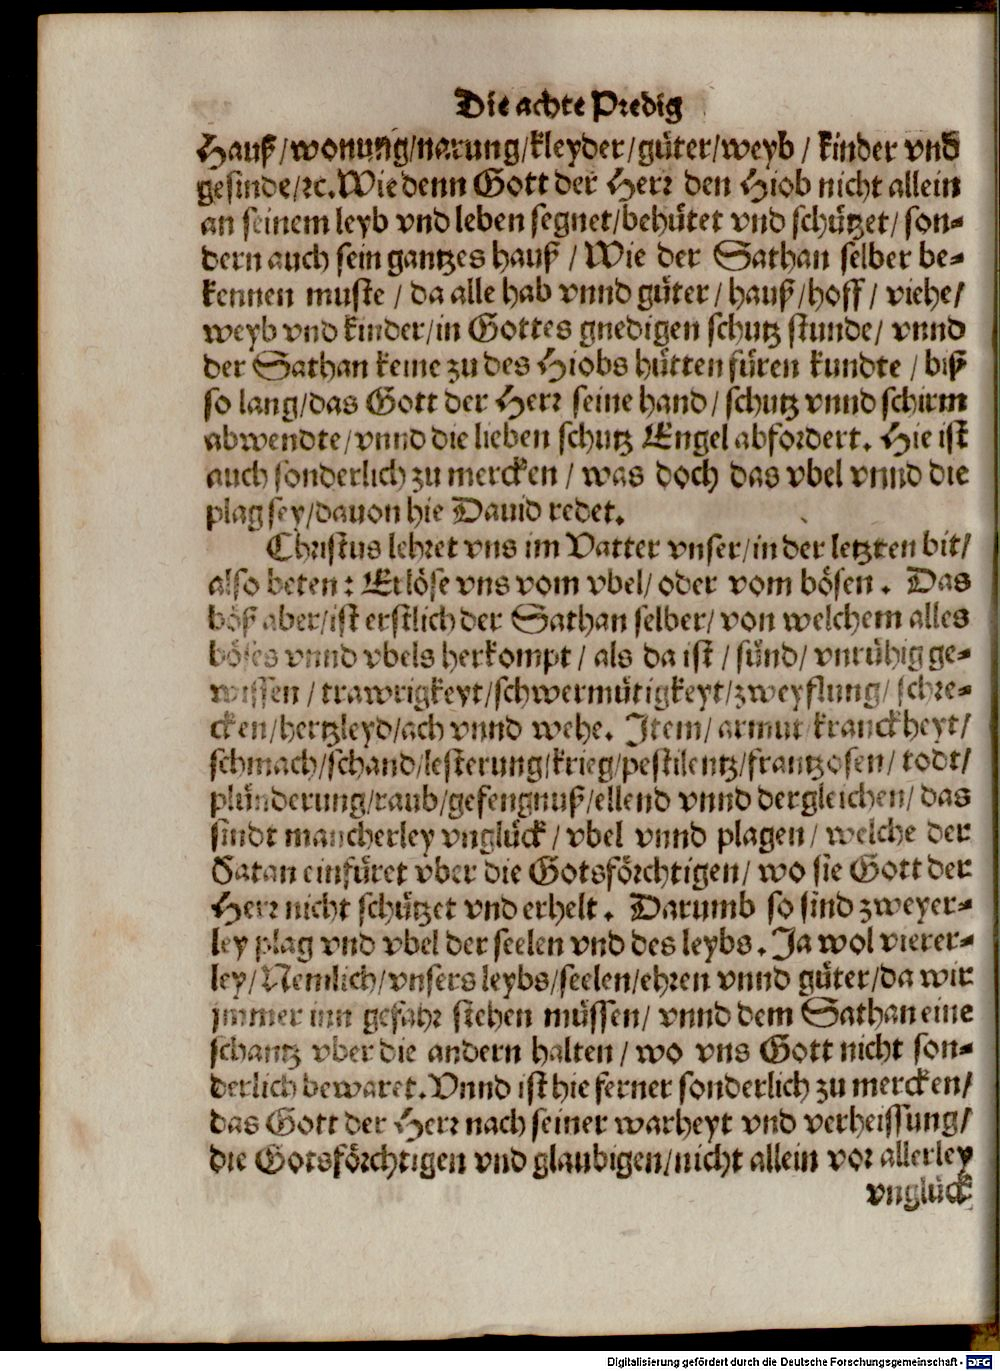 Die achte Predig
Hauß/wonung/narung/kleyder/güter/weyb / kinder vnd
gesinde/ꝛc. Wie denn Gott der Herꝛ den Hiob nicht allein
an seinem leyb vnd leben segnet/behütet vnd schützet/ son-
dern auch sein gantzes hauß / Wie der Sathan selber be-
kennen muste / da alle hab vnnd güter / hauß/hoff / viehe/
weyb vnd kinder/in Gottes gnedigen schutz stunde/ vnnd
der Sathan keine zu des Hiobs hütten füren kundte / biß
so lang/das Gott der Herꝛ seine hand / schutz vnnd schirm
abwendte/vnnd die lieben schutz Engel abfordert. Hie ist
auch sonderlich zu mercken / was doch das vbel vnnd die
plag sey/dauon hie Dauid redet.
Christus lehret vns im Vatter vnser/in der letzten bit/
also beten: Erlöse vns vom vbel/ oder vom bösen. Das
böß aber/ist erstlich der Sathan selber/ von welchem alles
böses vnnd vbels herkompt / als da ist / sünd/ vnrühig ge-
wissen / trawrigkeyt/schwermütigkeyt/zweyflung/ schre-
cken/hertzleyd/ach vnnd wehe. Item/ armut kranckheyt/
schmach/schand/lesterung/krieg/pestilentz/frantzosen/ todt/
plünderung/raub/gefengnuß/ellend vnnd dergleichen/ das
sindt mancherley vnglück / vbel vnnd plagen / welche der
Satan einfüret vber die Gotsförchtigen/ wo sie Gott der
Herꝛ nicht schützet vnd erhelt. Darumb so sind zweyer-
ley plag vnd vbel der seelen vnd des leybs. Ja wol vierer-
ley/Nemlich/vnsers leybs/seelen/ehren vnnd güter/da wir
jmmer inn gefahr stehen müssen/ vnnd dem Sathan eine
schantz vber die andern halten / wo vns Gott nicht son-
derlich bewaret. Vnnd ist hie ferner sonderlich zu mercken/
das Gott der Herꝛ nach seiner warheyt vnd verheissung/
die Gotsförchtigen vnd glaubigen/nicht allein vor allerley
vnglück
Digitalisierung gefördert durch die Deutsche Forschungsgemeinschaft - DFG